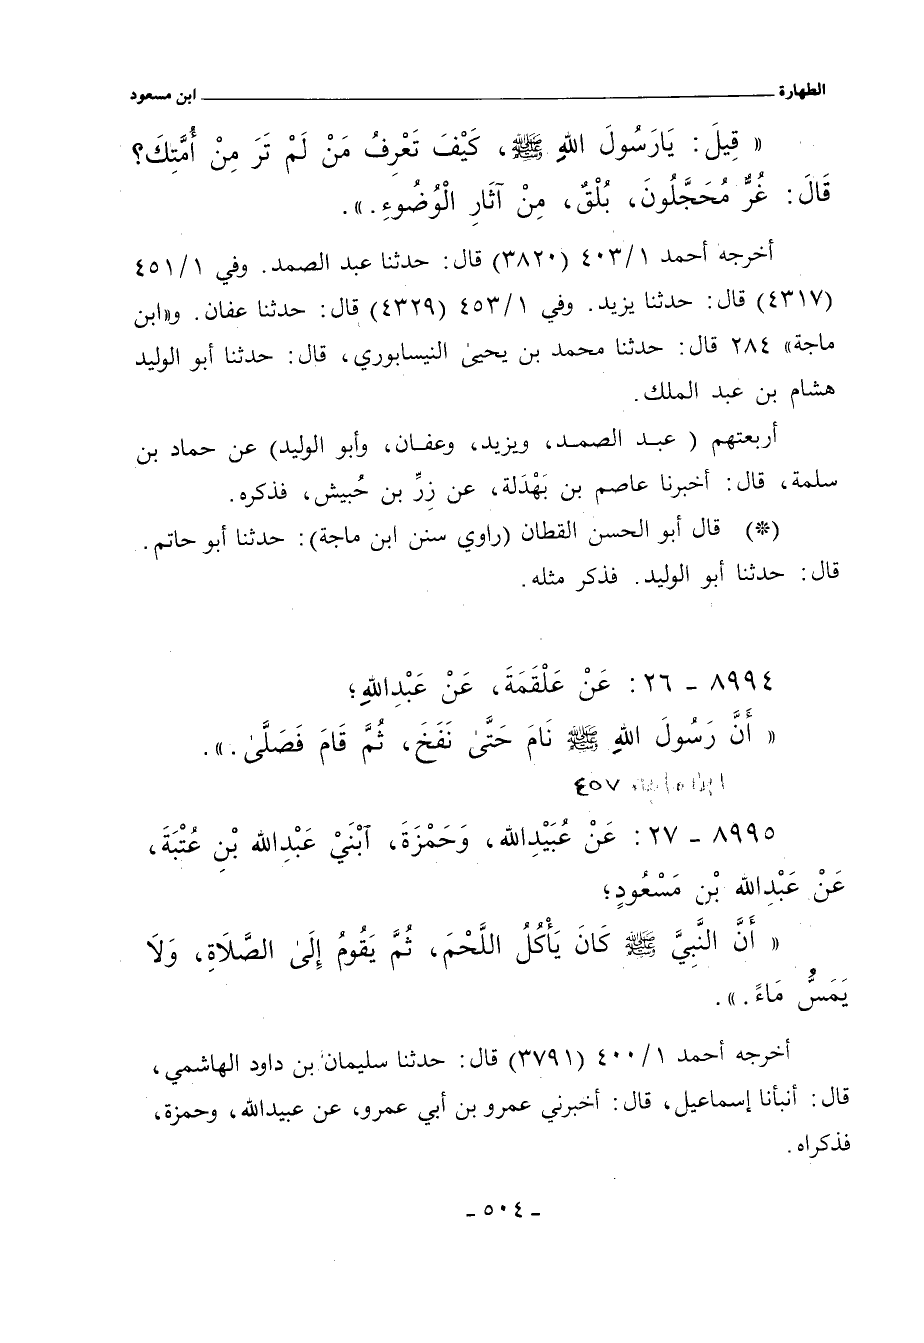 الطهارة ــــــــــــــــــــ ابن مسعود
« قِيلَ : يَارَسُولَ اللهِ ﷺ ، كَيْفَ تَعْرِفُ مَنْ لَمْ تَرَ مِنْ أُمَّتِكَ؟
قَالَ : غُرٌّ مُحَجَّلُونَ، بُلْقٌ، مِنْ آثَارِ الْوُضُوءِ . ».
أخرجه أحمد ٤٠٣/١ (٣٨٢٠) قال : حدثنا عبد الصمد . وفي ٤٥١/١
(٤٣١٧) قال : حدثنا يزيد . وفي ٤٥٣/١ (٤٣٢٩) قال : حدثنا عفان . و«ابن
ماجة» ٢٨٤ قال : حدثنا محمد بن يحيىٰ النيسابوري، قال : حدثنا أبو الوليد
هشام بن عبد الملك .
أربعتهم ( عبد الصمد، ويزيد، وعفان، وأبو الوليد) عن حماد بن
سلمة، قال : أخبرنا عاصم بن بَهْدَلة، عن زِرِّ بن حُبيش، فذكره .
(*) قال أبو الحسن القطان (راوي سنن ابن ماجة) : حدثنا أبو حاتم .
قال : حدثنا أبو الوليد . فذكر مثله .
٨٩٩٤ - ٢٦ : عَنْ عَلْقَمَةَ، عَنْ عَبْدِاللهِ؛
« أَنَّ رَسُولَ اللهِ ﷺ نَامَ حَتَّىٰ نَفَخَ، ثُمَّ قَامَ فَصَلَّىٰ . ».
٤٥٧
٨٩٩٥ - ٢٧ : عَنْ عُبَيْدِالله، وَحَمْزَةَ، ٱبْنَيْ عَبْدِالله بْنِ عُتْبَةَ،
عَنْ عَبْدِالله بْنِ مَسْعُودٍ؛
« أَنَّ النَّبِيَّ ﷺ كَانَ يَأْكُلُ اللَّحْمَ، ثُمَّ يَقُومُ إِلَىٰ الصَّلَاةِ، وَلَا
يَمَسُّ مَاءً . ».
أخرجه أحمد ٤٠٠/١ (٣٧٩١) قال : حدثنا سليمان بن داود الهاشمي،
قال : أنبأنا إسماعيل، قال : أخبرني عمرو بن أبي عمرو، عن عبيدالله، وحمزة،
فذكراه .
- ٥٠٤ -